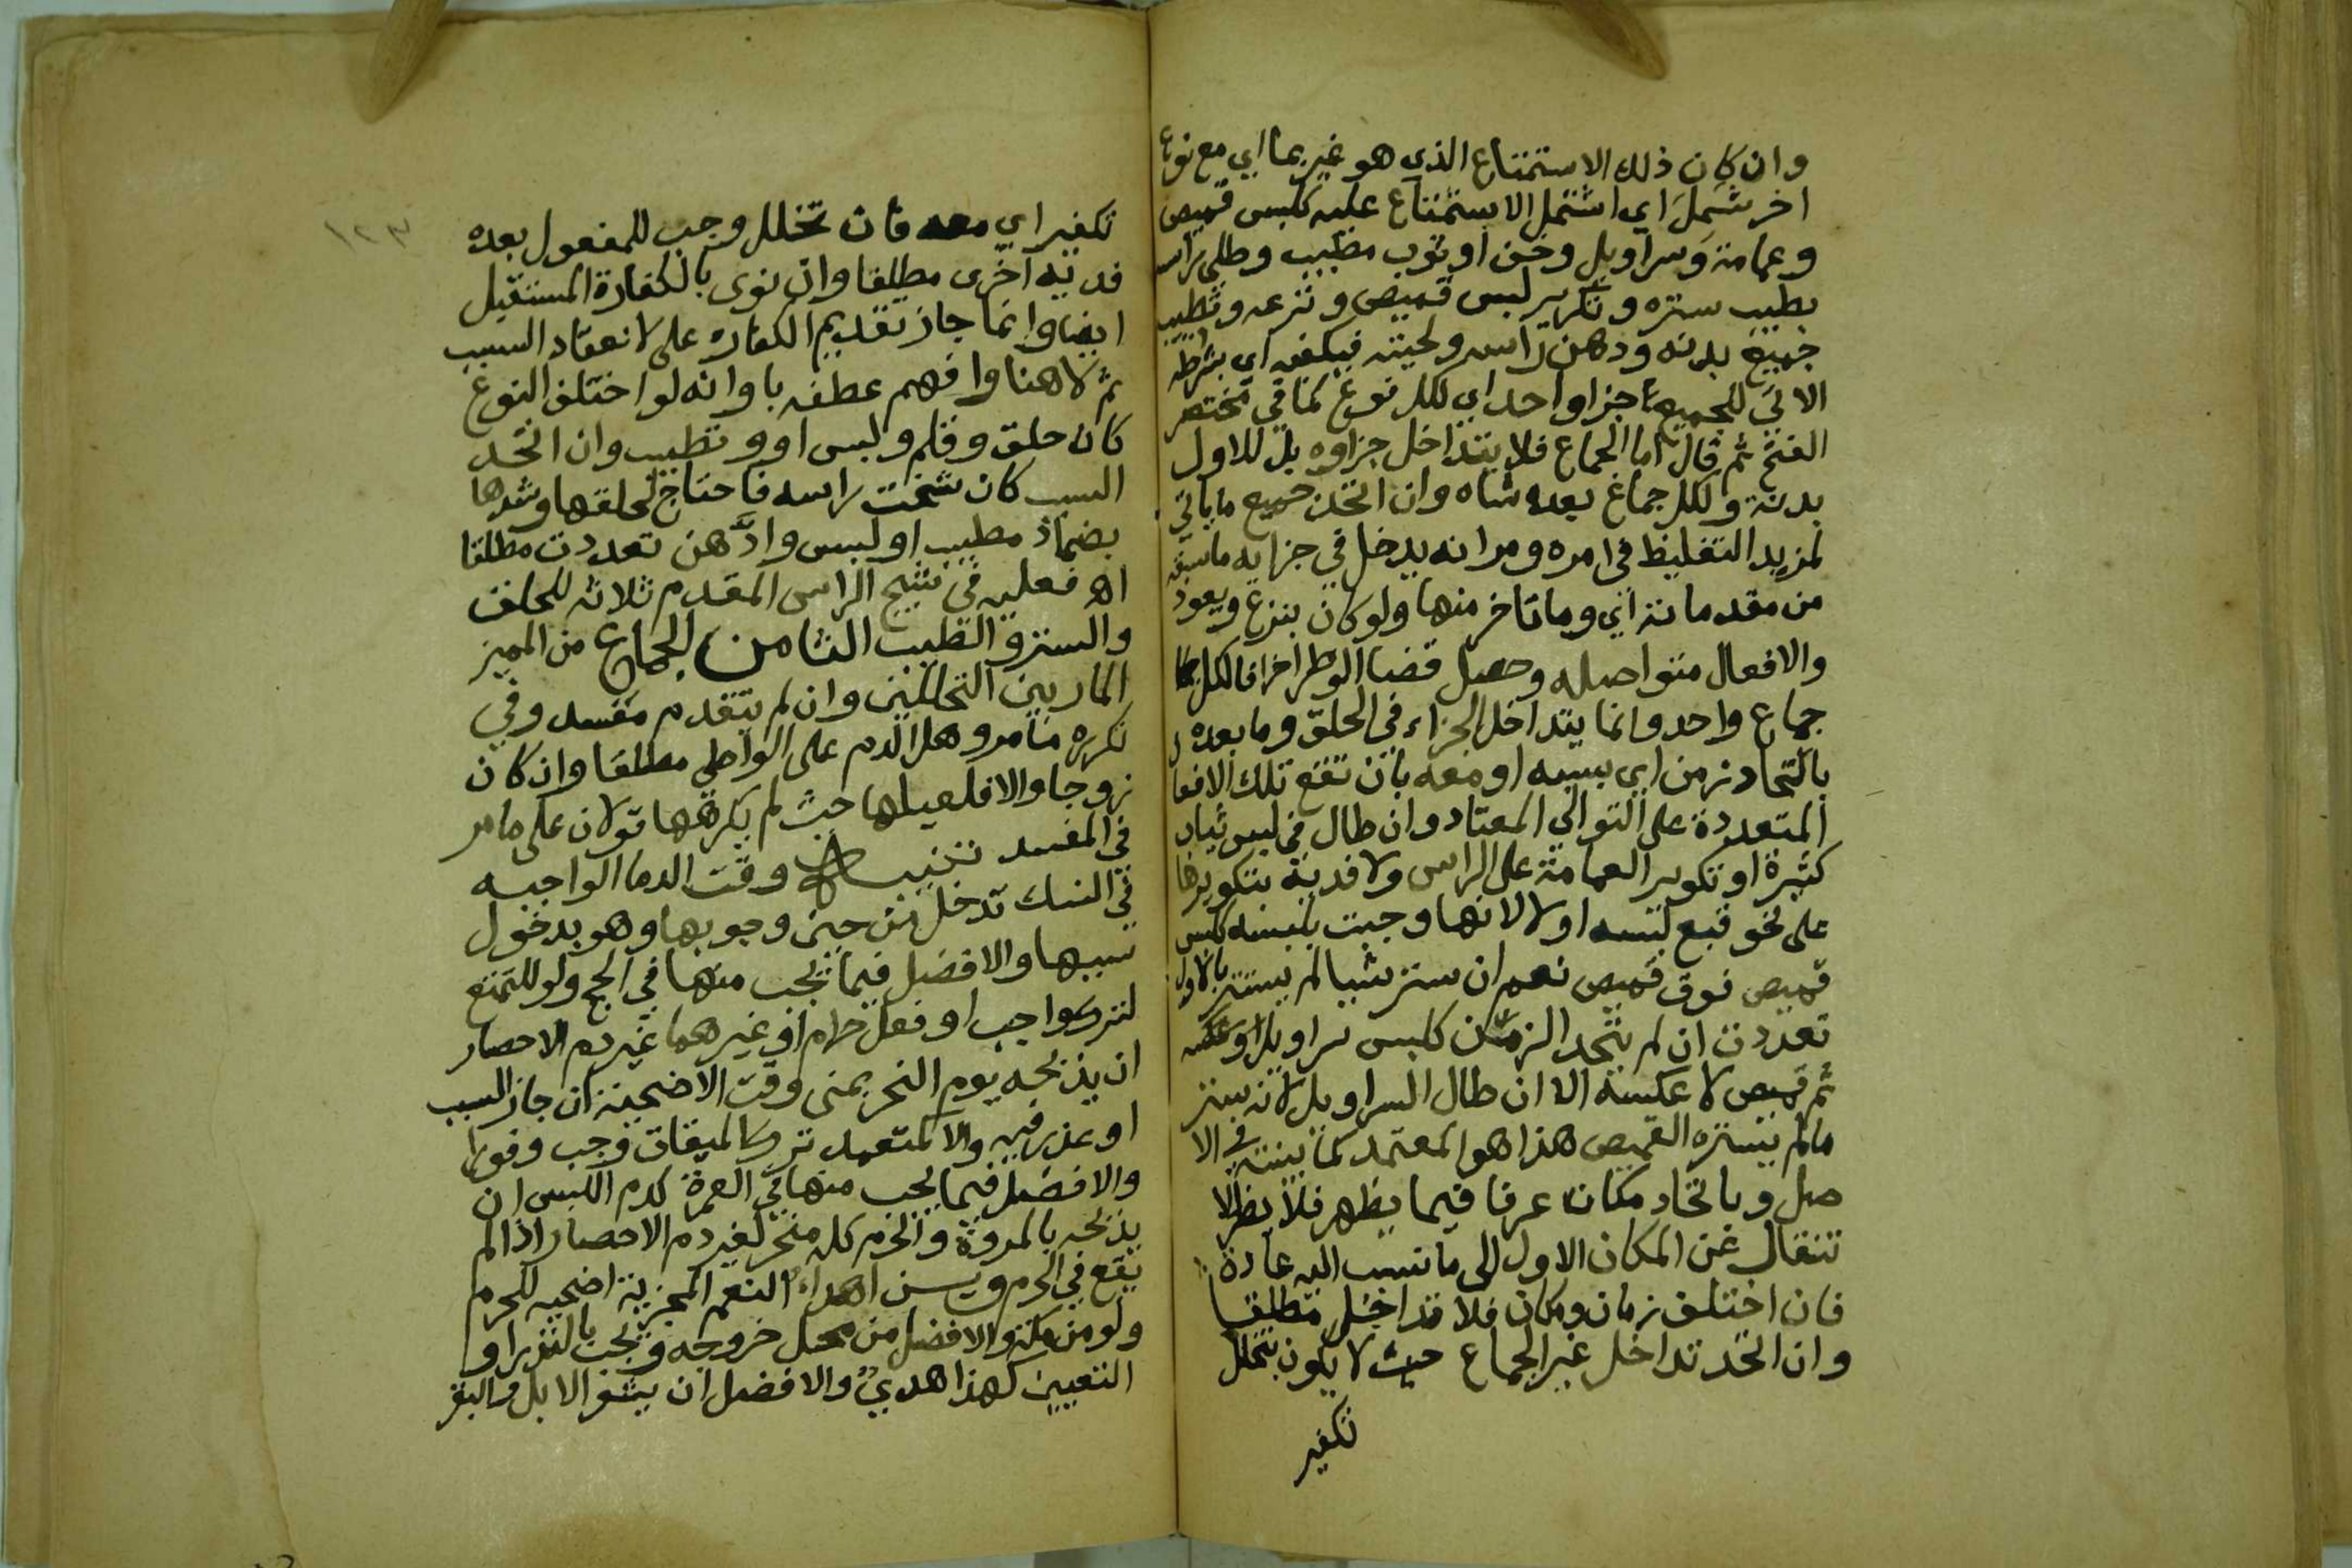 وان كان ذلك الاستمتاع الذي هو غير بما اي مع نوع
اخر شمل اي اشتمل الاستمتاع عليه كلبس قميص
وعمامة وسراويل وخف او ثوب مطيب وطلي راسه
بطيب ستره وتكرير لبس قميص ونزعه وتطييب
جميع بدنه ودهن راسه ولحيته فيكفيه اي بشرطه
الاتي للجميع جزا واحد اي لكل نوع كما في مختصر
الفتح ثم قال اما الجماع فلا يتداخل جزاوه بل للاول
بدنة ولكل جماع بعده شاه وان اتحد جميع ما ياتي
لمزيد التغليظ في امره ومر انه يدخل في جزايه ما سبقه
من مقدماته اي وما تاخر منها ولو كان ينزع ويعود
والافعال متواصله وحصل قضا الوطر اخرا فالكل
جماع واحد وانما يتداخل الجزاء في الحلق وما بعده
باتحاد زمن اي بسببه او معه بان تقع تلك الافعا
المتعددة على التوالي المعتاد وان طال في لبس ثياب
كثيرة او تكوير العمامة على الراس ولا فدية بتكويرها
على نحو قبع لبسه اولا لانها وجبت بلبسه كلبس
قميص فوق قميص نعم ان ستر شيا لم يستتر بالاول
تعددت ان لم يتحد الزمن كلبس سراويل او عكسه
ثم قميص لا عكسه الا ان طال السراويل لانه يستر
مالم يستره القميص هذا هو المعتمد كما بينته في الا
صل وباتحاد مكان عرفا فيما يظهر فلا يظر الا
نتقال عن المكان الاول الى ما نسب اليه عادة
فان اختلف زمان ومكان فلا تداخل مطلقا
وان اتحد تداخل غير الجماع حيث لا يكون بتخلل
تكفير
١٢٣
تكفير اي معه فان تخلل وجب للمفعول بعده
فدية اخرى مطلقا وان نوى بالكفارة المستقبل
ايضا وانما جاز تقديم الكفاره على لانعقاد السبب
ثم لا هنا وافهم عطفه باو انه لو اختلف النوع
كان حلق وقلم ولبس او وتطيب وان اتحد
السبب كان شجت راسه فاحتاج لحلقها وشدها
بضماد مطيب او لبس وادهن تعددت مطلقا
اه فعليه في شج الراس المقدم ثلاثه للحلق
والستر والطيب الثامن الجماع من المميز
المار بين التحللين وان لم يتقدم مفسد وفي
تكرره مامر وهل الدم على الواطي مطلقا وان كان
زوجا والا فلعيلها حيث لم يكرهها قولان على مامر
في المفسد تنبيه وقت الدما الواجبه
في النسك تدخل من حين وجوبها وهو بدخول
سببها والافضل فيما يجب منها في الحج ولو للتمتع
لترك واجب او فعل حرام او غيرهما غير دم الاحصار
ان يذبحه يوم النحر بمنى وقت الاضحية ان جاز السبب
او عذر فيه والا كمتعمد ترك الميقات وجب وفورا
والافضل فيما يجب منها في العمرة كدم اللبس ان
يذبحه بالمروة والحرم كله منحر لغير دم الاحصار اذا لم
يقع في الحرم ويسن اهداء النعم المجزية اضحيه للحرم
ولو من مكة والافضل من محل خروجه ويجب بالنذر او
التعيين كهذا هدي والافضل ان يشعر الابل والبقر